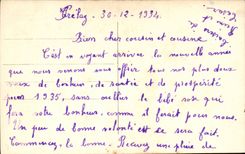 30-12-1934
Bien cher cousin et cousine
C'est en voyant arriver la nouvelle année
que nous venons vous offrir tous nos plus doux
vœux de bonheur, de santé et de prospérité
pour 1935, sans oublier le bébé rose qui
fera votre bonheur, comme il ferait pour nous.
Un peu de bonne volonté et ce sera fait.
la bonne. Recevez une pluie de